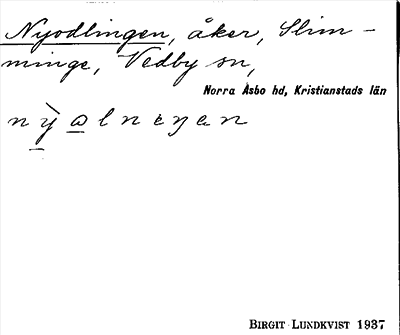 Nyodlingen, åker, Slim-
minge, Vedby sn,
Norra Åsbo hd, Kristianstads län
BIRGIT LUNDKVIST 1937